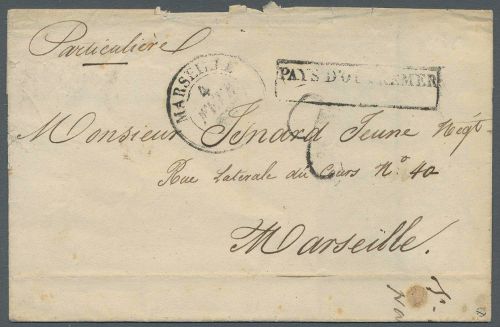 Particulière
MARSEILLE
4
FEVR
PAYS D'OUTREMER
2
Monsieur Isnard Jeune Négt
Rue Laterale du Cours N° 40
Marseille.